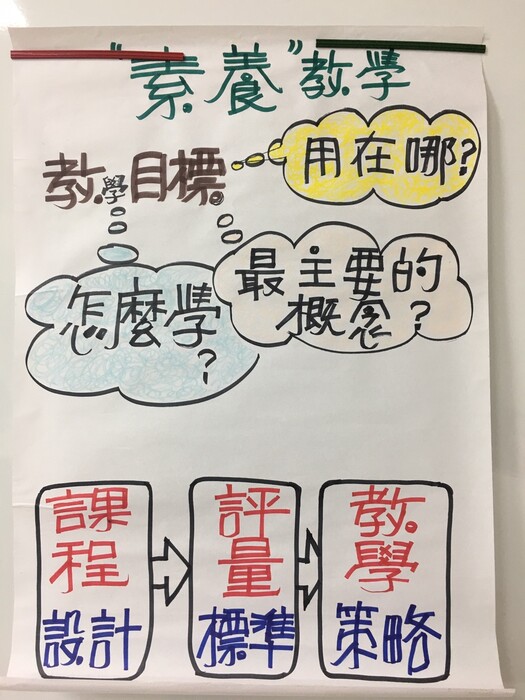 “素養”教學
教學目標
用在哪?
最主要的
概念?
怎麼學
?
課程
設計
評量
標準
教學
策略